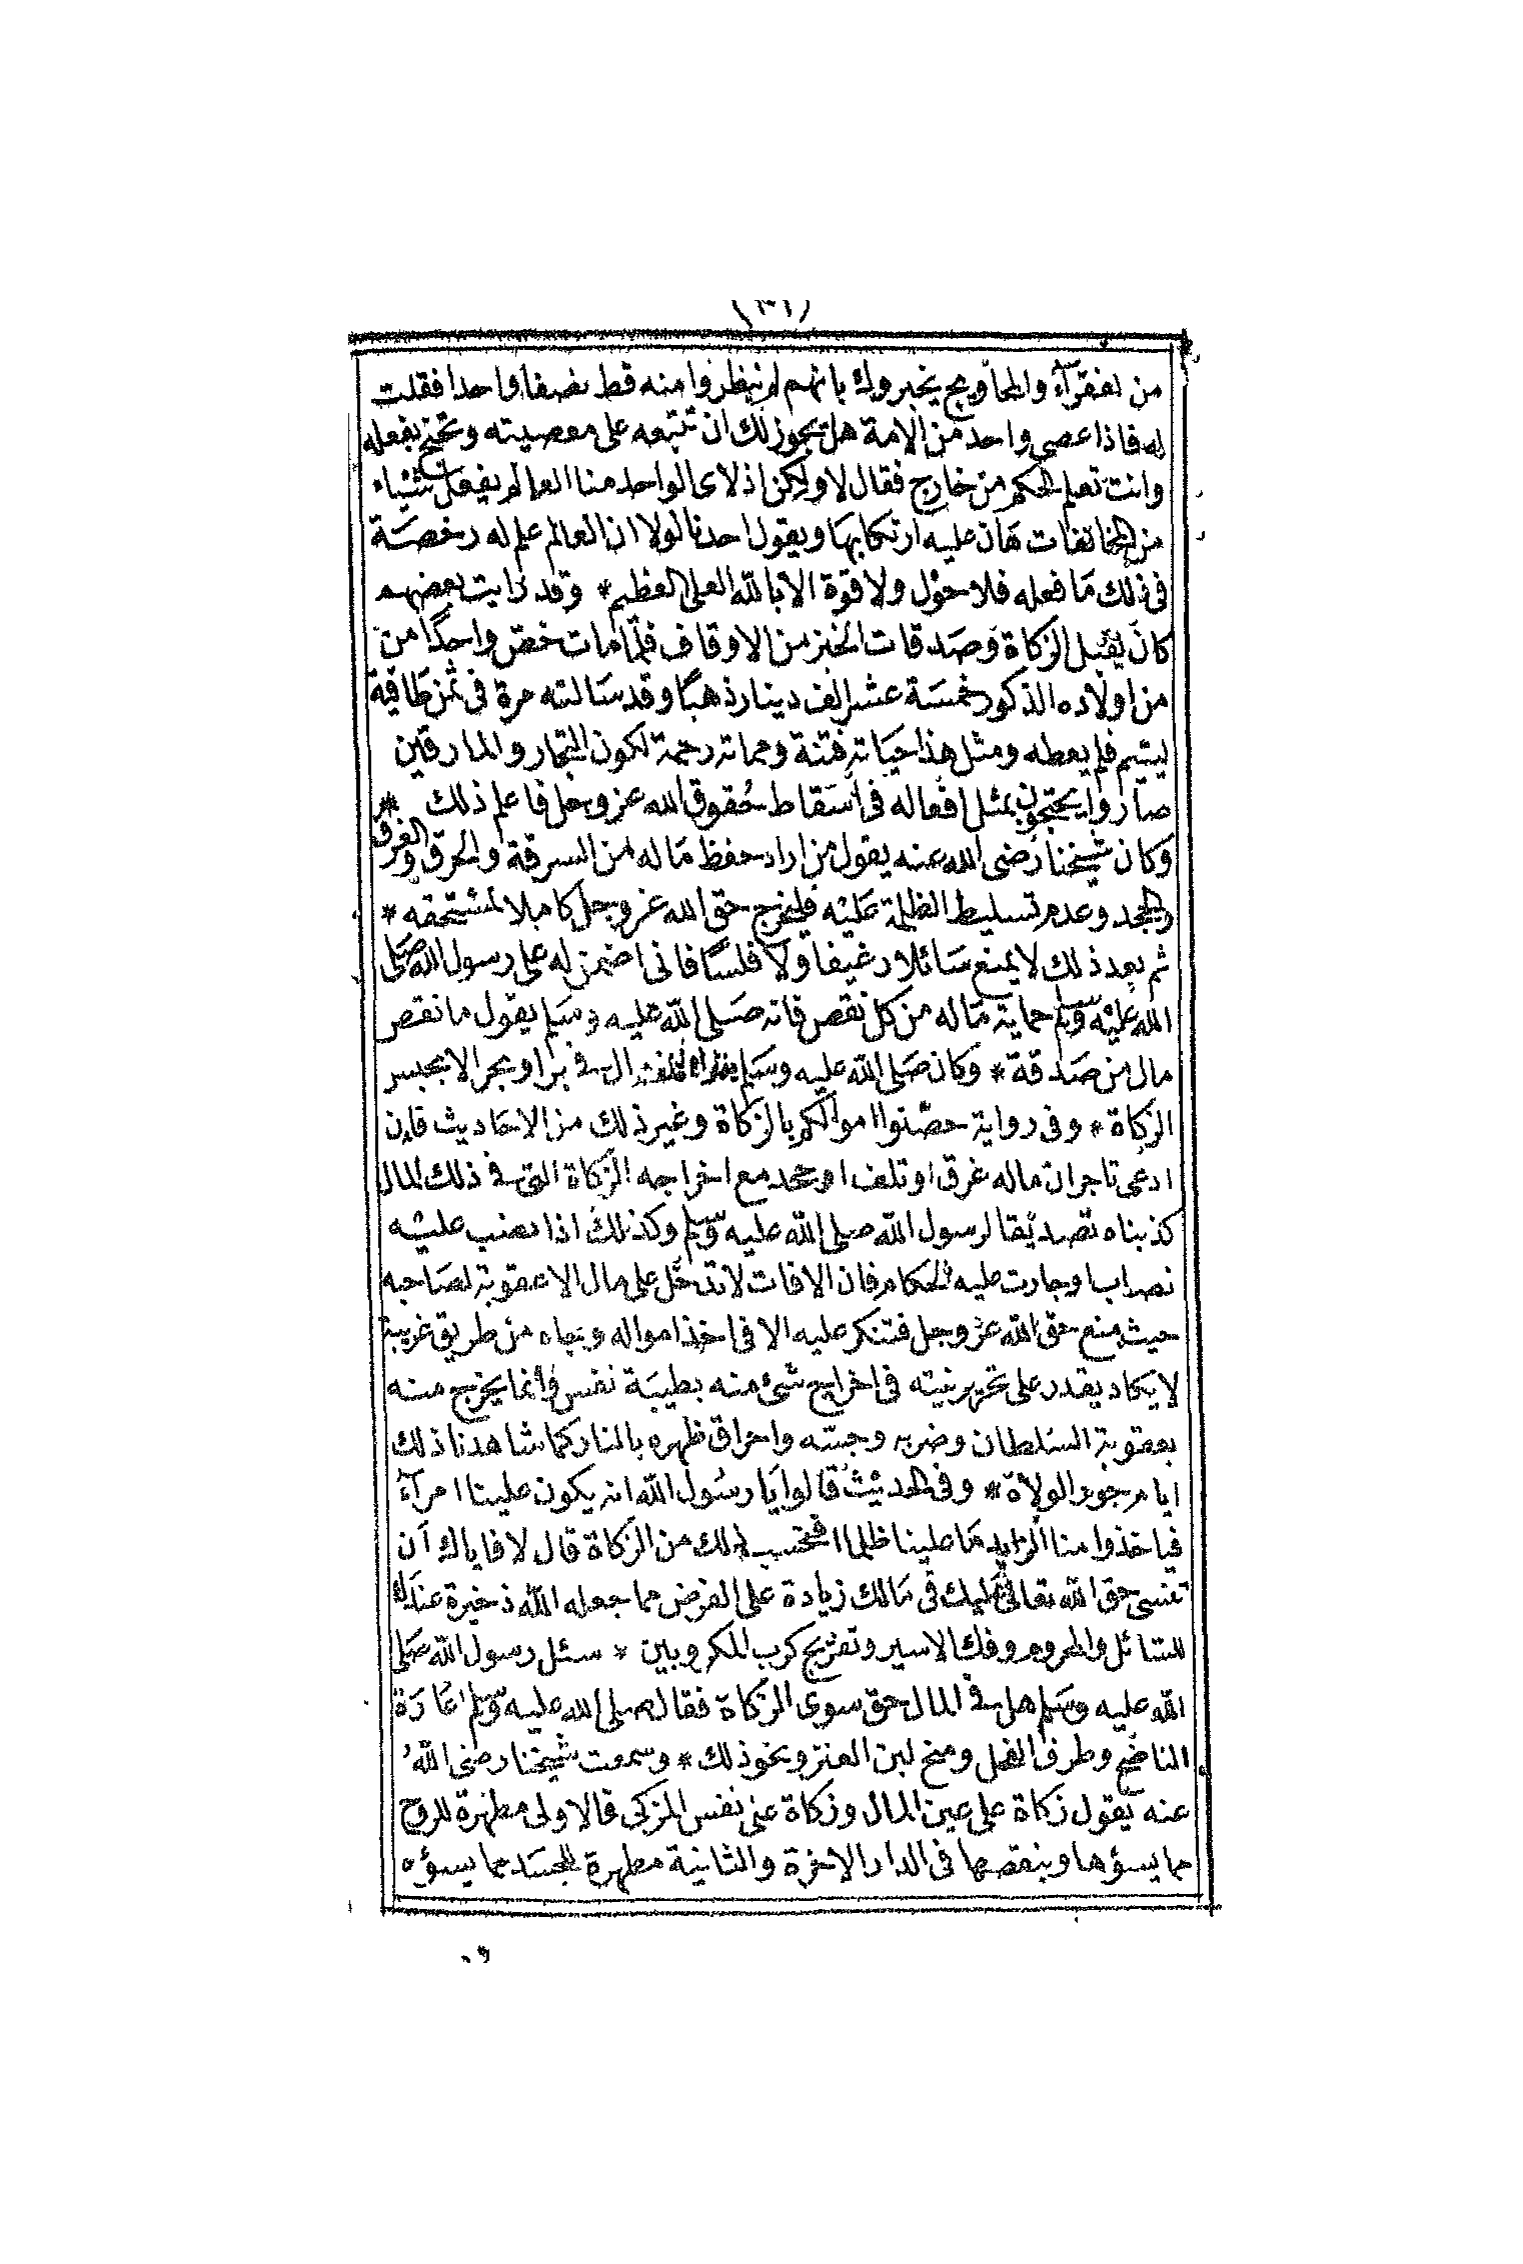 من الفقرآء والمحاويج يخبرونك بانهم لم ينظروا منه قط نصفا واحدا فقلت
له فاذا عصى واحد من الامة هل يجوز لك ان تتبعه على معصيته وتحتج بفعله
وانت تعلم الحكم من خارج فقال لا ولكن اذا راى الواحد منا العالم يفعل شيئا
من المخالفات هان عليه ارتكابها ويقول احدنا لولا ان العالم علم له رخصة
فى ذلك ما فعله فلا حول ولا قوة الا بالله العلى العظيم * وقد رايت بعضهم
كان يقبل الزكاة وصدقات الخبز من الاوقاف فلما مات خص واحدا من
من اولاده الذكور خمسة عشر الف دينار ذهبا وقد سالته مرة فى ثمن طاقية
ليتيم فلم يعطه ومثل هذا حياته فتنة ومماته رحمة لكون التجار والمارقين
صاروا يحتجون بمثل افعاله فى اسقاط حقوق الله عز وجل فاعلم ذلك *
وكان شيخنا رضى الله عنه يقول من اراد حفظ ماله من السرقة والحرق والغرق
والجحد وعدم تسليط الظلمة عليه فليخرج حق الله عز وجل كاملا لمستحقه *
ثم بعد ذلك لا يمنع سائلا رغيفا ولا فلسا فانى اضمن له على رسول الله صلى
الله عليه وسلم حماية ماله من كل نقص فانه صلى الله عليه وسلم يقول ما نقص
مال من صدقة * وكان صلى الله عليه وسلم يقول ما تلف مال فى بر او بحر الا بحبس
الزكاة * وفى رواية حصنوا اموالكم بالزكاة وغير ذلك من الاحاديث فإن
ادعى تاجر ان ماله غرق او تلف او جحد مع اخراجه الزكاة التى فى ذلك المال
كذبناه تصديقا لرسول الله صلى الله عليه وسلم وكذلك اذا نصب عليه
نصاب او جارت عليه الحكام فان الافات لا تدخل على مال الا عقوبة لصاحبه
حيث منع حق الله عز وجل فتنكر عليه الا فى اخذ امواله وتجاه من طريق غريبة
لا يكاد يقدر على تحرير نيته فى اخراج شئ منه بطيبة نفس وانما يخرج منه
بعقوبة السلطان وضربه وحبسه واحراق ظهره بالنار كما شاهدنا ذلك
ايام جور الولاة * وفى الحديث قالوا يا رسول الله انه يكون علينا امرآء
فياخذوا منا الزايد ما علينا ظلما افنحتسب ذلك من الزكاة قال لا فاياك أن
تنسى حق الله تعالى عليك فى مالك زيادة على الفرض مما جعله الله ذخيرة عندك
للسائل والمحروم وفك الاسير وتفريج كرب المكروبين * سئل رسول الله صلى
الله عليه وسلم هل فى المال حق سوى الزكاة فقال صلى الله عليه وسلم اعارة
الناضح وطرق الفحل ومنح لبن العنز ونحو ذلك * وسمعت شيخنا رضى الله
عنه يقول زكاة على عين المال وزكاة على نفس المزكى فالاولى مطهرة للروح
مما يسؤها وينقصها فى الدار الاخرة والثانية مطهرة للجسد مما يسؤه